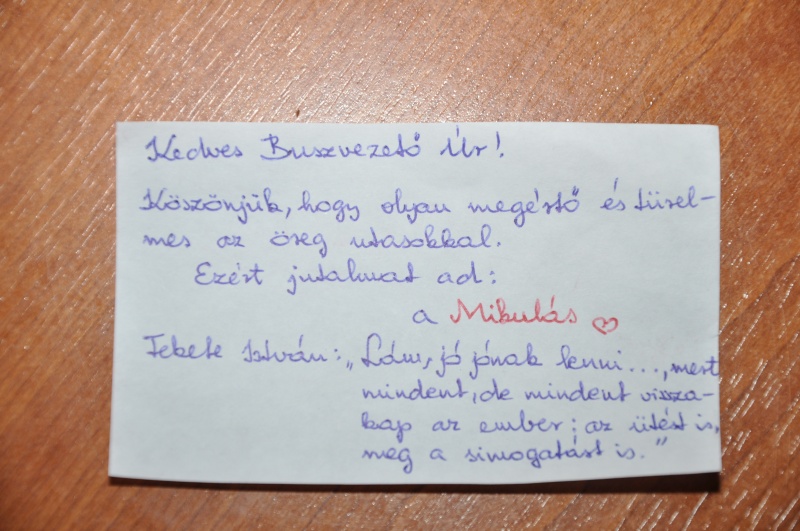 Kedves Buszvezető Úr!
Köszönjük, hogy olyan megértő és türel-
mes az öreg utasokkal.
Ezért jutalmat ad:
a Mikulás
Fekete István: „Lám, jó jónak lenni..., mert
mindent, de mindent vissza-
kap az ember; az ütést is,
meg a simogatást is.”